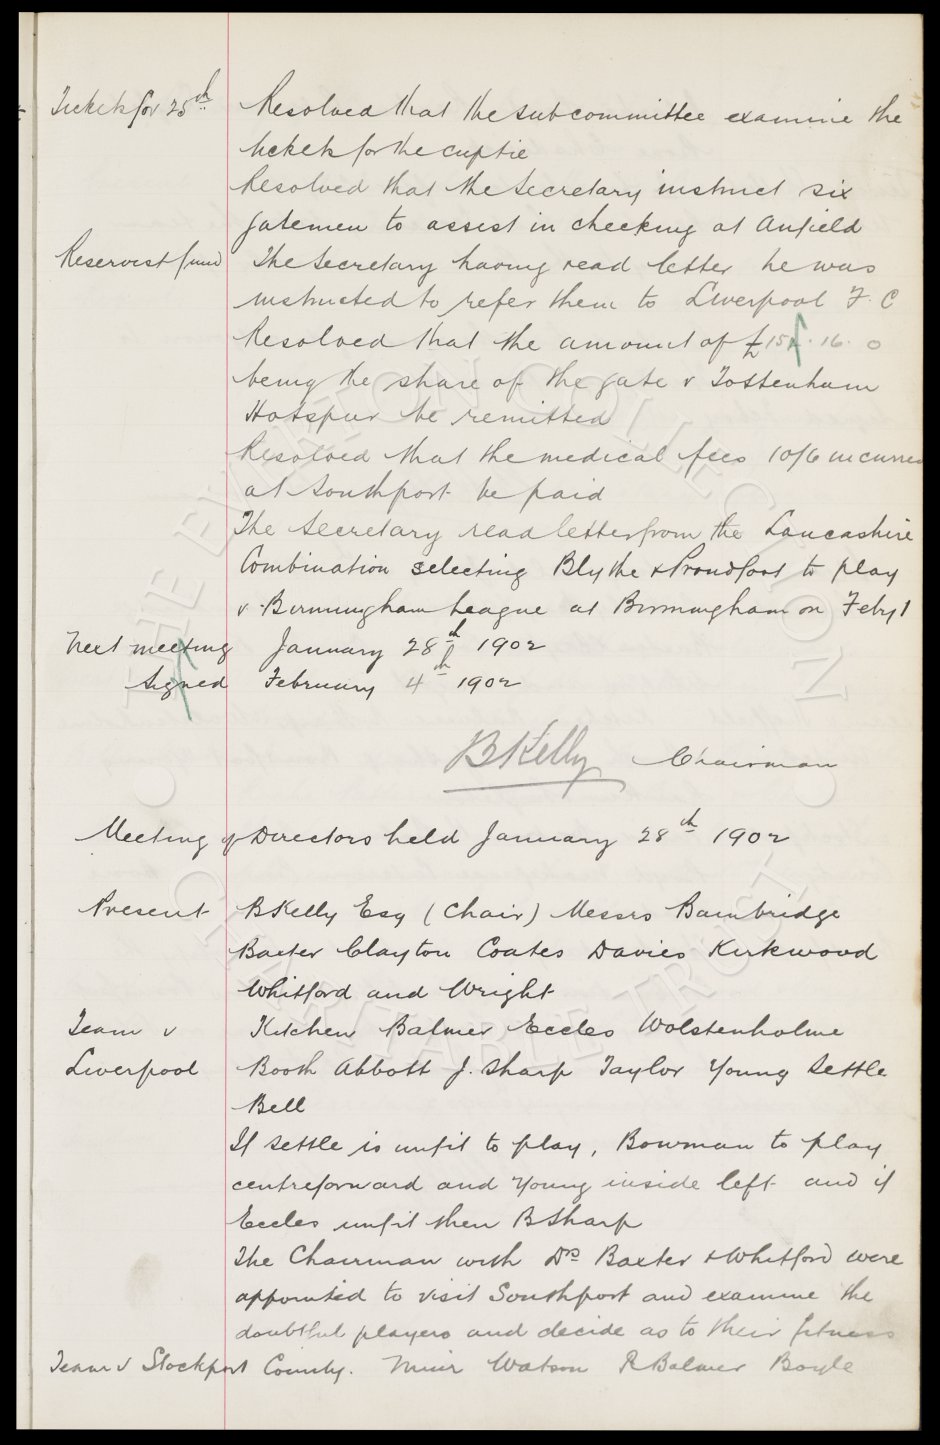 Tickets for 25th Resolved that the subcommittee examine the
tickets for the cuptie
Resolved that the Secretary instruct six
gatemen to assist in checking at Anfield
Reservist fund The Secretary having read letter he was
instructed to refer them to Liverpool F. C
Resolved that the amount of £ 16. 0
being the share of the gate v Tottenham
Hotspur be remitted
Resolved that the medical fees 10/6 incurred
at Southport be paid
The Secretary read letter from the Lancashire
Combination selecting Blythe & Proudfoot to play
v Birmingham League at Birmingham on Feby 1
Next meeting January 28th 1902
Signed February 4th 1902
B Kelly Chairman
Meeting of Directors held January 28th 1902
Present B Kelly Esq (Chair) Messrs Bainbridge
Baxter Clayton Coates Davies Kirkwood
Whitford and Wright
Team v Kitchen Balmer Eccles Wolstenholme
Liverpool Booth Abbott J. Sharp Taylor Young Settle
Bell
If Settle is unfit to play, Bowman to play
centreforward and Young inside left and if
Eccles unfit then B Sharp
The Chairman with Drs Baxter & Whitford were
appointed to visit Southport and examine the
doubtful players and decide as to their fitness
Team v Stockport County. Muir Watson R Balmer Boyle
THE EVERTON COLLECTION CHARITABLE TRUST